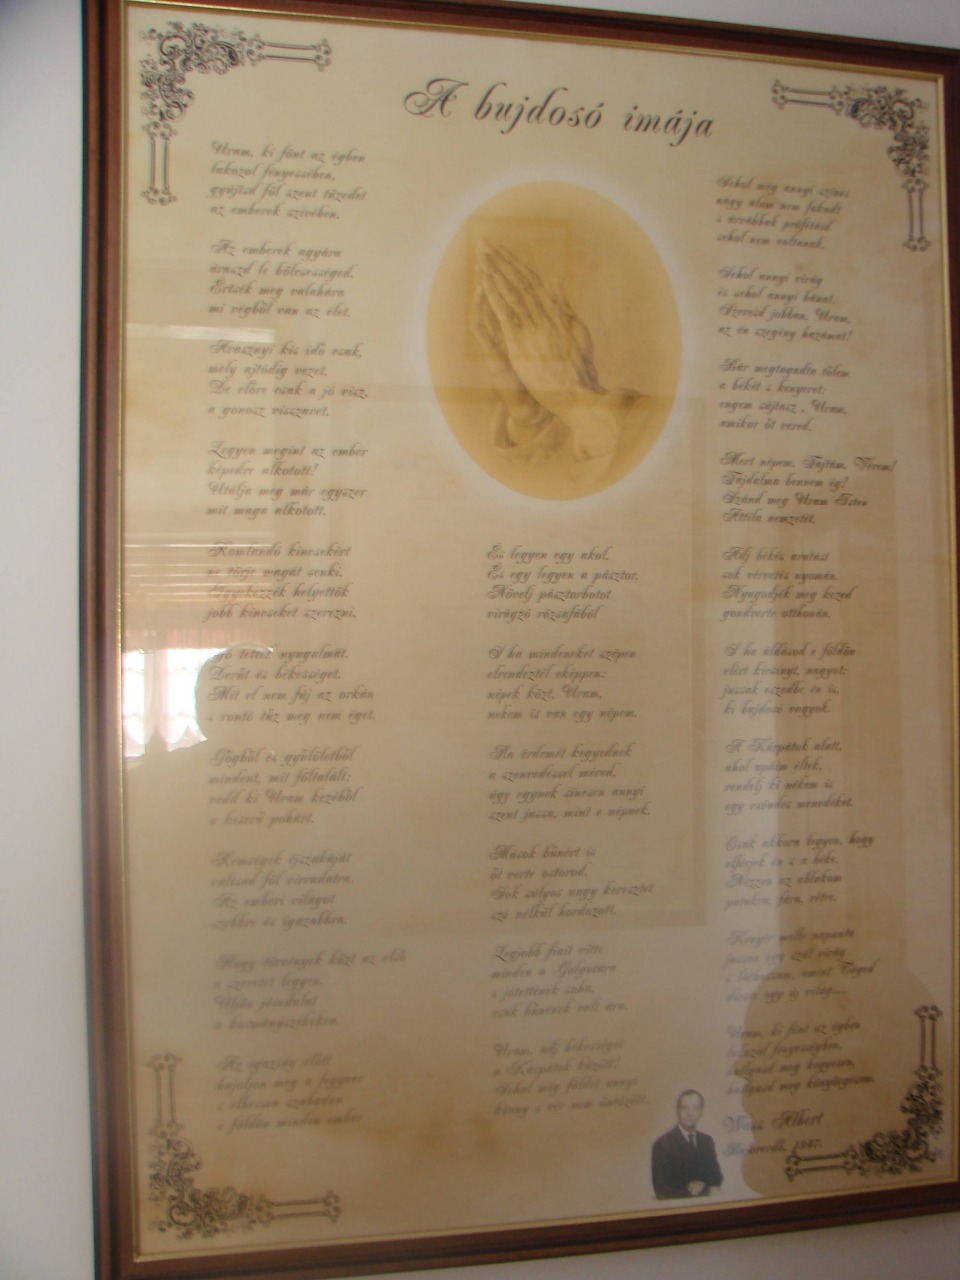 A bujdosó imája
Uram, ki fönt az égben
lakozol fényességben,
gyújtsd föl szent tüzedet
az emberek szívében.
Az emberek agyára
áraszd le bölcsességed.
Értsék meg valahára
mi végből van az élet.
Arasznyi kis idő csak,
mely ajtódig vezet.
De előre csak a jó visz,
a gonosz visszavet.
Legyen megint az ember
képedre alkotott!
Utálja meg már egyszer
mit maga alkotott.
Romlandó kincsekért
ne törje magát senki.
Igyekezzék helyettök
jobb kincseket szerezni.
Jó tettek nyugalmát.
Derűt és békességet.
Mit el nem fúj az orkán
s rontó tűz meg nem éget.
Gőgből és gyűlöletből
mindent, mit föltalált:
vedd ki Uram kezéből
a keserű pohárt.
Kémségek éjszakáját
váltsad föl virradatra.
Az emberi világot
szebbre és igazabbra.
Hogy törvények közt az első
a szeretet legyen.
Üljön jóindulat
a kormányszékeken.
Az igazság előtt
hajoljon meg a fegyver
s élhessen szabadon
e földön minden ember
És legyen egy akol.
És egy legyen a pásztor.
Növelj pásztorbotot
virágzó rózsafából
S ha mindeneket szépen
elrendeztél eképpen:
népek közt, Uram,
nekem is van egy népem.
Ha érdemét kegyednek
a szenvedéssel méred,
úgy egynek sincsen annyi
szent jussa, mint e népnek.
Mások bűnért is
őt verte ostorod.
Sok súlyos nagy keresztet
szó nélkül hordozott.
Legjobb fiait vitte
minden a Golgotára
s játettének soha,
csak bűnének volt ára.
Uram, adj békességet
a Kárpátok között!
Sehol még földet annyi
könny s vér nem öntözött..
Sehol még annyi színes
nagy álom nem fakadt
s árvábbak prófétáid
sehol nem voltanak.
Sehol annyi virág
és sehol annyi bánat.
Szeresd jobban, Uram,
az én szegény hazámat!
Bár megtagadta tőlem
a békét s kenyeret:
engem sújtasz, Uram,
amikor őt vered.
Mert népem. Fajtám. Vérem!
Fájdalma bennem ég!
Szánd meg Uram Isten
Attila nemzetét.
Adj békés aratást
sok vérvetés nyomán.
Nyugodjék meg kezed
gondverte otthonán.
S ha áldásod e földön
elért kicsinyt, nagyot:
jussak eszedbe én is,
ki bujdosó vagyok.
A Kárpátok alatt,
ahol apáim éltek,
rendelj ki nékem is
egy csöndes menedéket.
Csak akkora legyen, hogy
elférjek én s a béke.
Nézzen az ablakom
patakra, fára, rétre.
Kenyér mellé naponta
jusson egy szál virág
s láthassam, amint Téged
dícsér egy új világ.....
Uram, ki fönt az égben
lakozol fényességben,
hallgasd meg kegyesen,
hallgasd meg könyörgésem.
Wass Albert
1947.